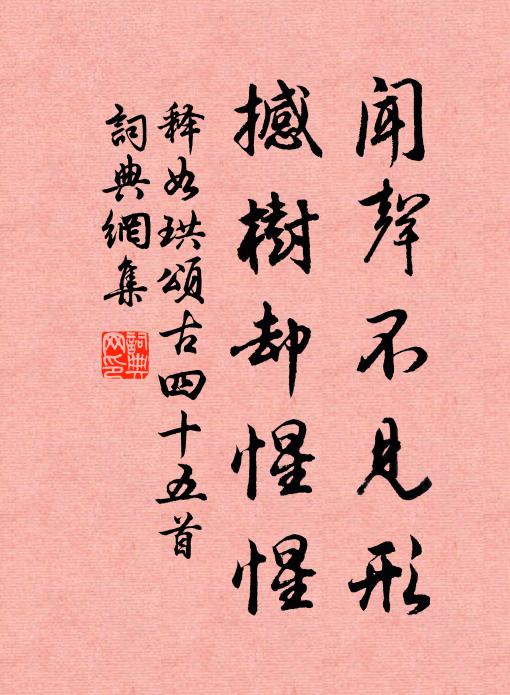 聞聲不見形
撼樹却惺惺
釋如珙頌古四十五首
詞典網集
詞典网印